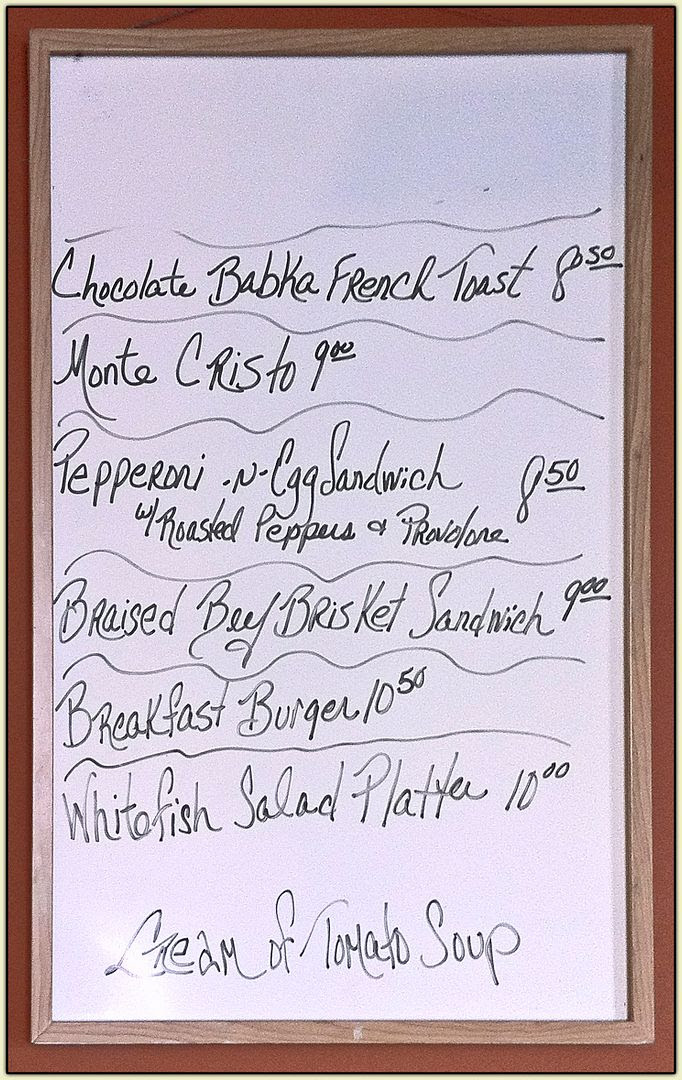 Chocolate Babka French Toast 8.50
Monte Cristo 9.00
Pepperoni -N- Egg Sandwich 8.50
w/ Roasted Peppers & Provolone
Braised Beef Brisket Sandwich 9.00
Breakfast Burger 10.50
Whitefish Salad Platter 10.00
Cream of Tomato Soup